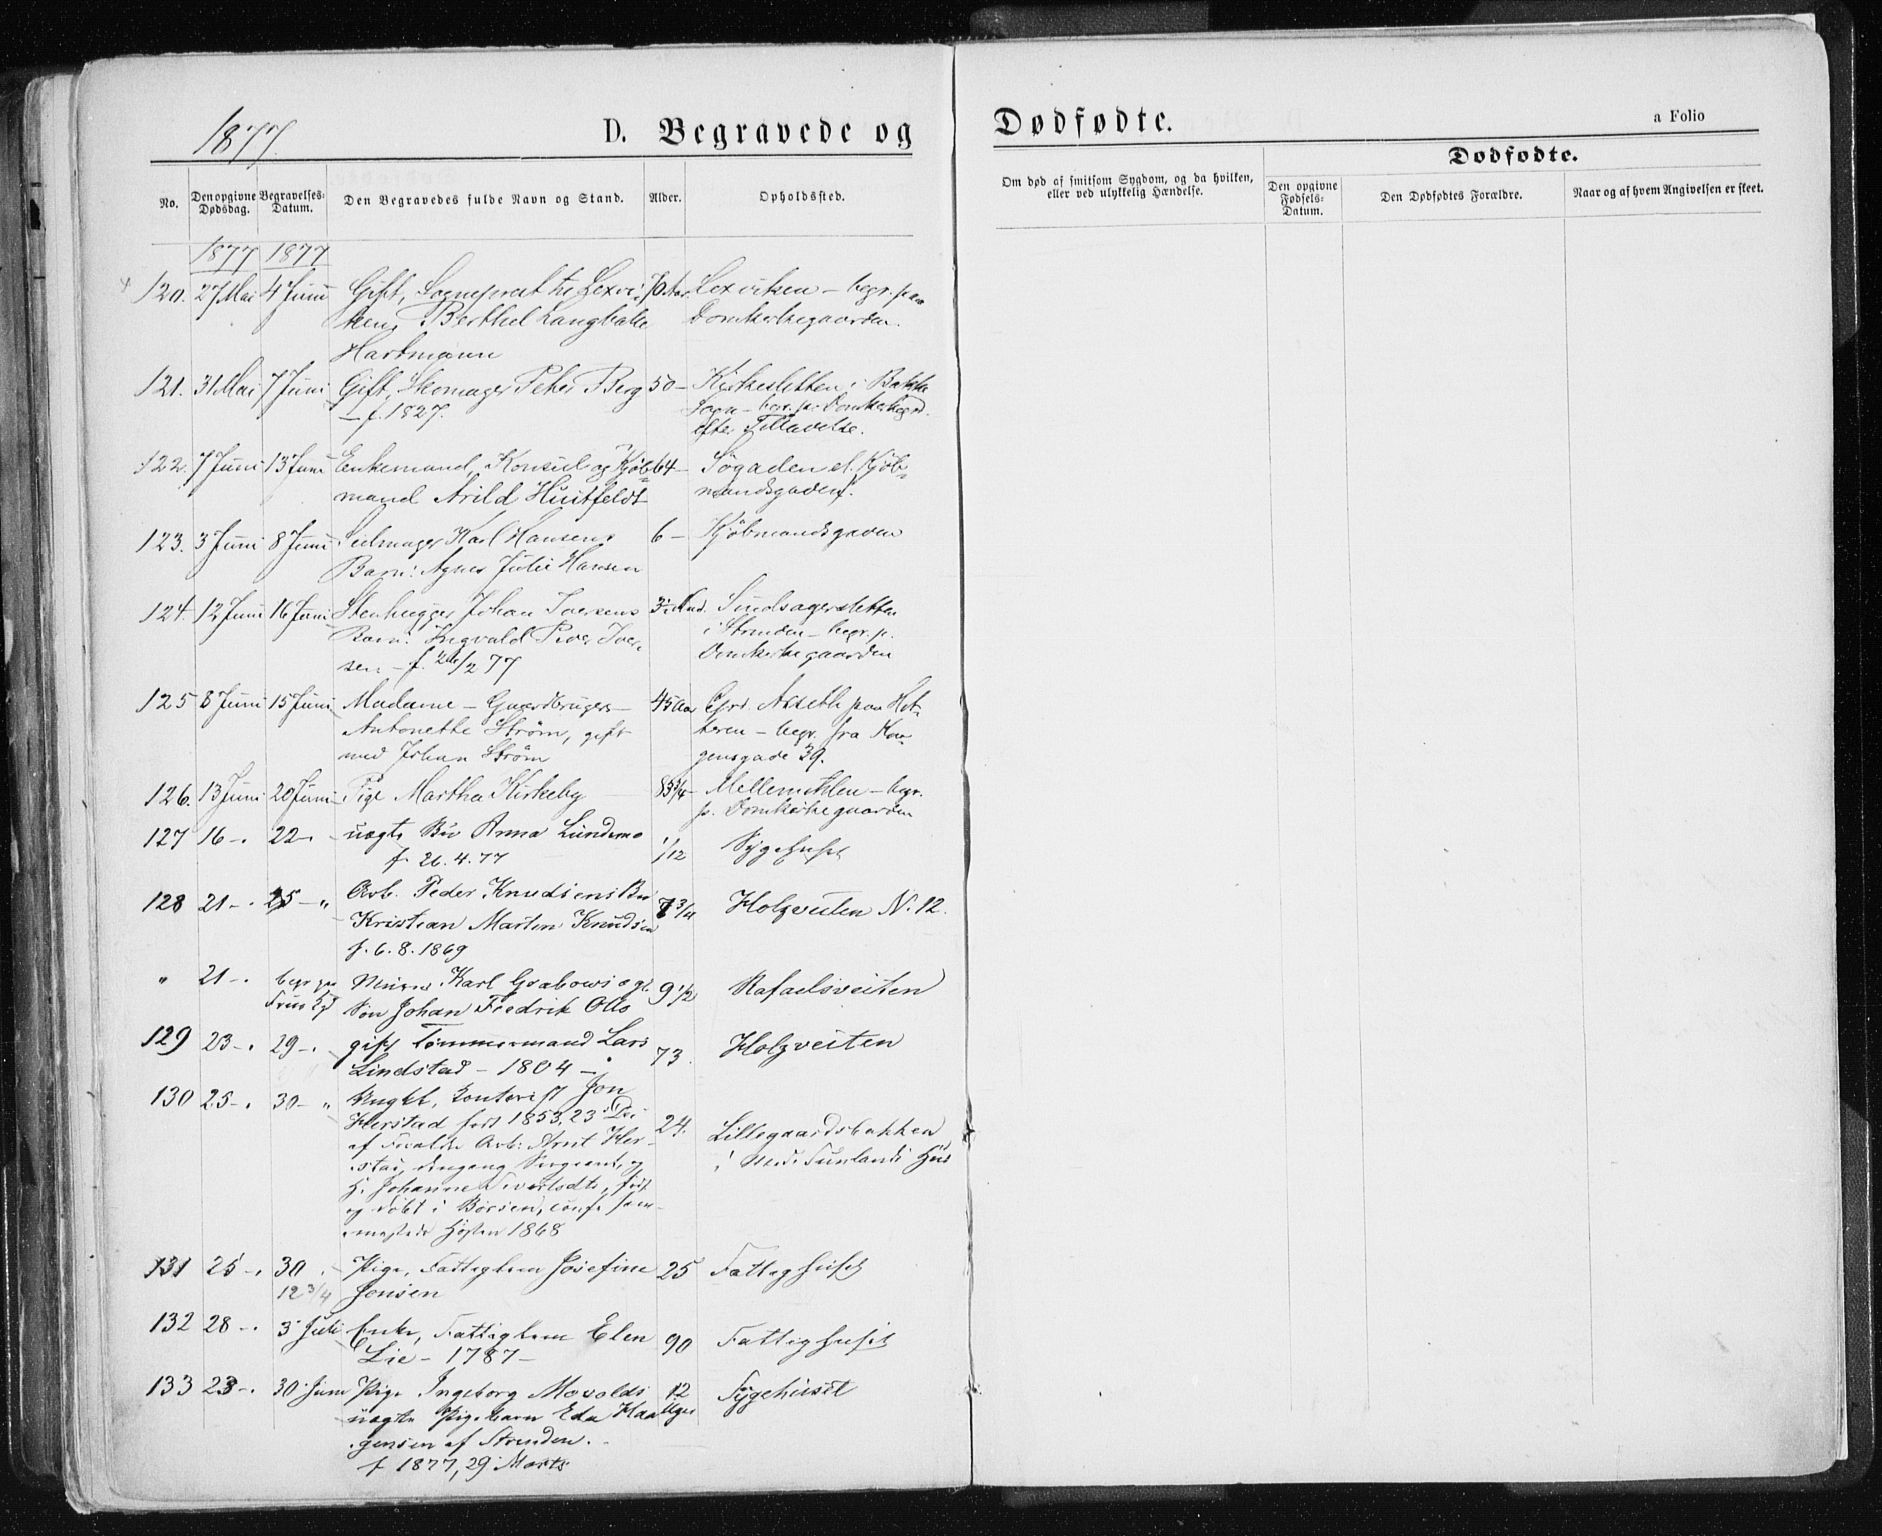 1877.
D. Begravede og
Dødfødte.
a Folio
No.
Den opgivne Dødsdag.
Begravelses-Datum.
Den Begravedes fulde Navn og Stand.
Alder.
Opholdssted.
Om død af smitsom Sygdom, og da hvilken,
eller ved ulykkelig Hændelse.
Dødfødte.
Den opgivne Fødsels-Datum.
Den Dødfødtes Forældre.
Naar og af hvem Angivelsen er skeet.
1877 1877
120. 27 Mai 4 Juni Gift, Sogneprest til Lexvi- 70 Aar Lexviken - begr. paa
ken, Berthel Langballe Domkirkegaarden.
Hartmann
121. 31 Mai 7 Juni Gift, Skomager Peter Berg 50 - Kirkesletten i Bakke
- f. 1827. Sogn - begr. p. Domkirkegrd.
efter Tilladelse.
122. 7 Juni 13 Juni Enkemand, Konsul og Kjøb- 64 - Søgaden el. Kjøb-
mand Arild Huitfeldt mandsgaden.
123. 3 Juni 8 Juni Seilmager Karl Hansens 6 - Kjøbmandsgaden
Barn: Agnes Julie Hansen
124. 12 Juni 16 Juni Stenhugger Johan Iversens 3½ Mnd.
Barn: Ingvald Iver- i Strinden - begr. p.
sen - f. 26/2 77 Domkirkegaarden
125 8 Juni 15 Juni Madame - Gaardbruger - 45 Aar Grd. Aaseth paa Hit-
Antonette Strøm, gift teren - begr. fra Kon-
med Johan Strøm gensgade 39.
126. 13 Juni 20 Juni Pige Martha Kirkeby 83¾ - Mellemilen - begr.
p. Domkirkegaarden
127 16 -. 22 -. uægte Bn Anna Lundemo 1/12 Sygehuset
f. 26.4.77
128 21 -. 25 - " Arb. Peder Knudsens Bn 7¾ Holzveiten N. 12.
Kristian Martin Knudsen
f. 6.8.1869
" 21 -. begr. paa Murm. Karl Grabows ægt. 9½ Rafaelsveiten
Frue Kg Søn Johan Fredrik Otto
129 23 -. 29 -. gift Tømmermand Lars 73. Holzveiten
Lindstad - 1804 -
130 25 -. 30 - " Ungkl, Kontorist Jon 24. Lillegaardsbakken
Herstad født 1853, 23 i Mad. Hus
af Arb. Arnt Her-
stad, dengang Sergeant, og
H. Johanne født
og døbt i Børsen, conf. sam-
mesteds Høsten 1868
131 25 -. 30 - Pige, Fattiglem Josefine 25 Fattighuset
12¾ Jensen
132 28 -. 3 Juli Enke, Fattiglem Elen 90 Fattighuset
Lie - 1787 -
133 23 -. 30 Juni Pige Ingeborg Movolds 12 Uger Sygehuset
uægte Pigebarn Eda Haa-
gensen af Strinden.
f 1877, 29 Marts